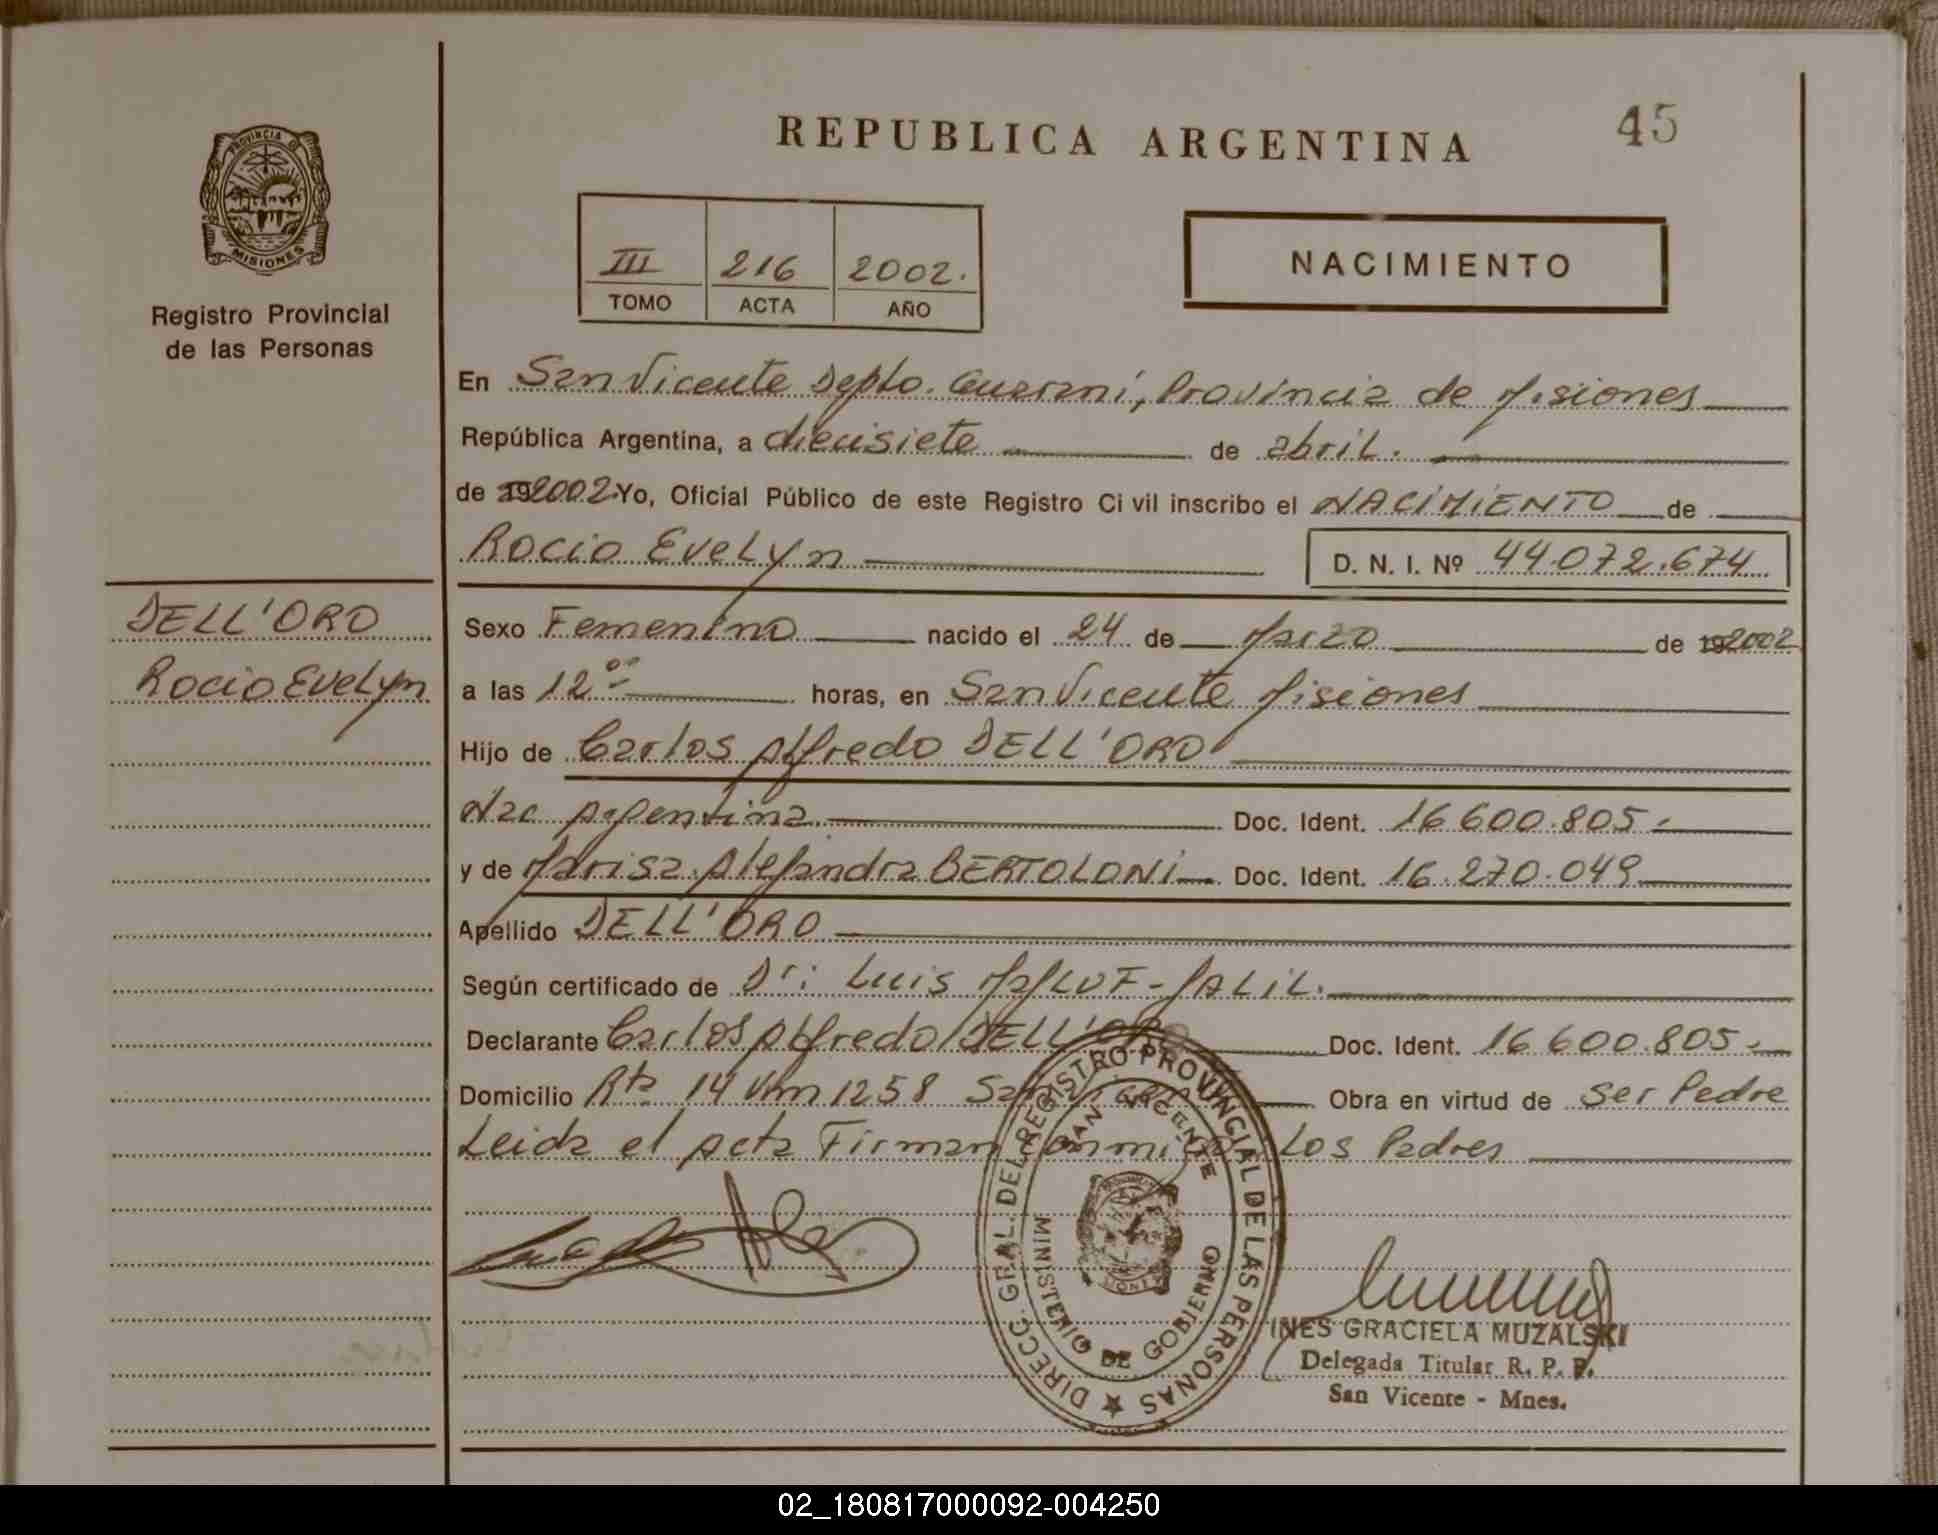 45
REPUBLICA ARGENTINA
PROVINCIA DE
MISIONES
Registro Provincial
de las Personas
III 216 2002.
TOMO ACTA AÑO
NACIMIENTO
En San Vicente Depto. Guaraní, Provincia de Misiones
República Argentina, a diecisiete de abril.
de 192002. Yo, Oficial Público de este Registro Civil inscribo el NACIMIENTO de
Rocio Evelyn D. N. I. Nº 44.072.674
DELL'ORO
Rocio Evelyn
Sexo Femenino nacido el 24 de Marzo de 192002
a las 12 00 horas, en San Vicente Misiones
Hijo de Carlos Alfredo DELL'ORO
Nac Argentina. Doc. Ident. 16 600.805.-
y de Marisa Alejandra BERTOLONI Doc. Ident. 16.270.049
Apellido DELL'ORO
Según certificado de Dr: Luis MALUF-JALIL.
Declarante Carlos Alfredo DELL'ORO Doc. Ident. 16 600.805.-
Domicilio Rta 14 Km 1258 San Vicente Obra en virtud de Ser Padre
Leida el Acta Firman Conmigo Los Padres
DIRECC. GRAL. DEL REGISTRO PROVINCIAL DE LAS PERSONAS
SAN VICENTE
MINISTERIO DE GOBIERNO
INES GRACIELA MUZALSKI
Delegada Titular R. P. P.
San Vicente - Mnes.
02_180817000092-004250